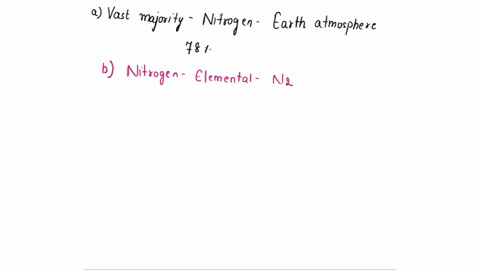 a) Vast majority - Nitrogen - Earth atmosphere
78 %.
b) Nitrogen - Elemental - N2